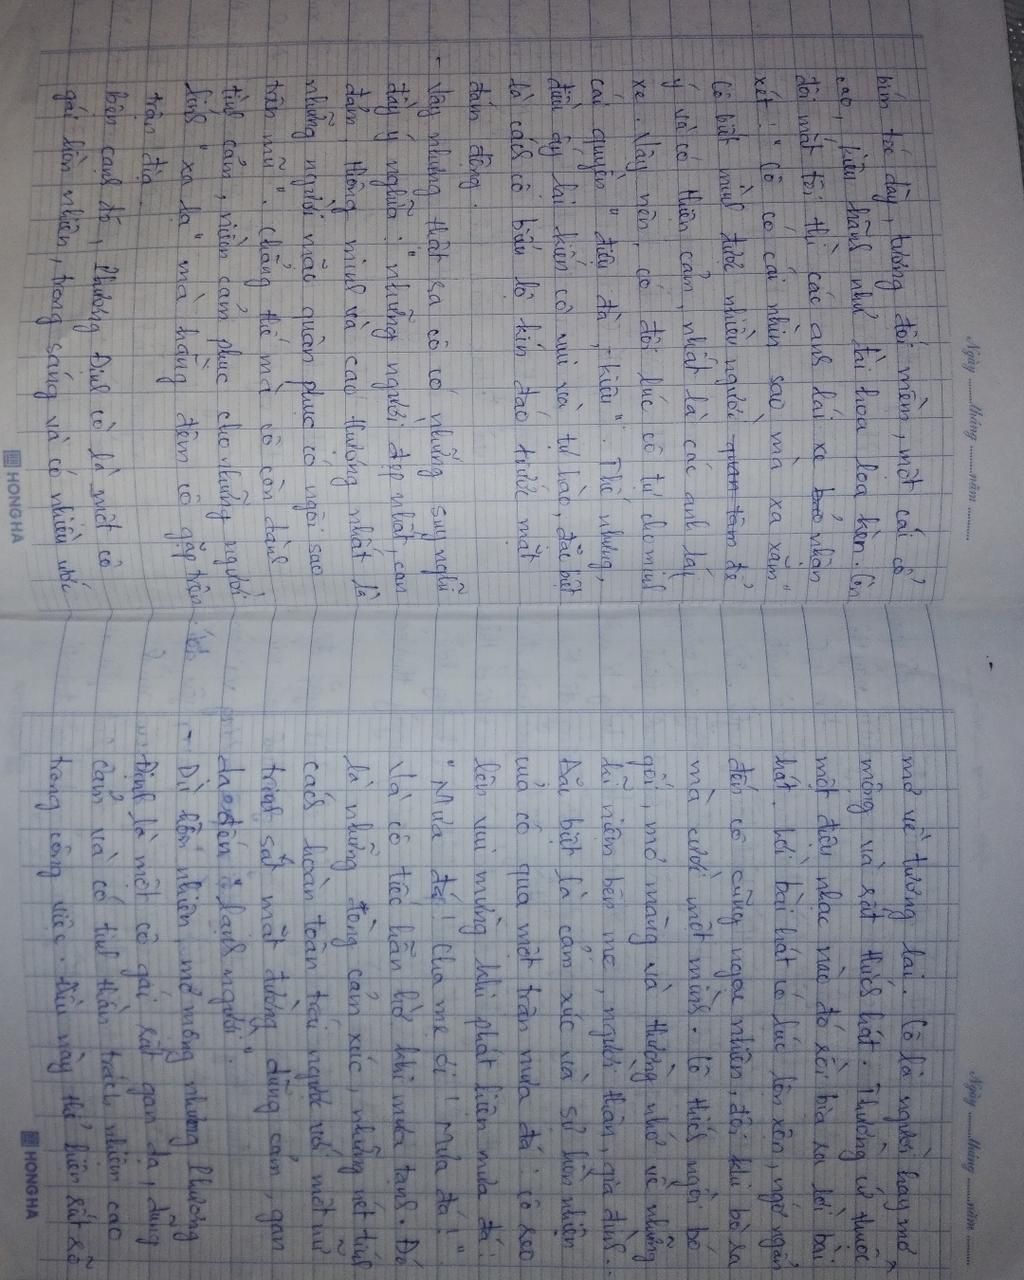 Ngày ......... tháng ......... năm .........
bím tóc dày, tương đối mềm, một cái cổ
cao, kiêu hãnh như đài hoa loa kèn. Còn
đôi mắt tôi thì các anh lái xe nhận
xét: " Cô có cái nhìn sao mà xa xăm "
Cô biết mình được nhiều người quan tâm để
ý và có thiện cảm, nhất là các anh lái
xe. Vậy nên, có đôi lúc cô tự cho mình
cái quyền " điệu đà, kiêu ". Thế nhưng,
điều ấy lại khiến cô vui và tự hào, đặc biệt
là cách cô biểu lộ kín đáo trước mặt
đám đông.
- Vậy nhưng thật sa cô có những suy nghĩ
đầy ý nghĩa: " những người đẹp nhất, can
đảm, thông minh và cao thượng nhất là
những người mặc quân phục có ngôi sao
trên mũ ". Chẳng thế mà cô còn dành
tình cảm, niềm cảm phục cho những người
lính " xa lạ " mà hằng đêm cô gặp trên
trận địa.
bên cạnh đó, Phương Định còn là một cô
gái hồn nhiên, trong sáng và có nhiều ước
HONG HA
Ngày ......... tháng ......... năm .........
mơ về tương lai. Cô là người hay mơ
mộng và rất thích hát. Thường cứ thuộc
một điệu nhạc nào đó rồi bịa ra lời bài
hát. Lời bài hát có lúc lộn xộn, ngớ ngẩn
đến cô cũng ngạc nhiên, đôi khi bò ra
mà cười một mình. Cô thích ngồi bó
gối, mơ màng và thường nhớ về những
kỉ niệm bên mẹ, người thân, gia đình...
Đặc biệt là cảm xúc và sự hồn nhiên
của cô qua một trận mưa đá: cô reo
lên vui mừng khi phát hiện mưa đá:
" Mưa đá! Cha mẹ ơi! Mưa đá! "
Và cô tiếc hẫn hờ khi mưa tạnh. Đó
là những dòng cảm xúc, những nét tính
cách hoàn toàn trái ngược với một nữ
trinh sát mặt đường dũng cảm, gan
dạ đến " lạnh người ".
- Dù hồn nhiên, mơ mộng nhưng Phương
Định là một cô gái rất gan dạ, dũng
cảm và có tinh thần trách nhiệm cao
trong công việc. Điều này thể hiện rất rõ
HONG HA